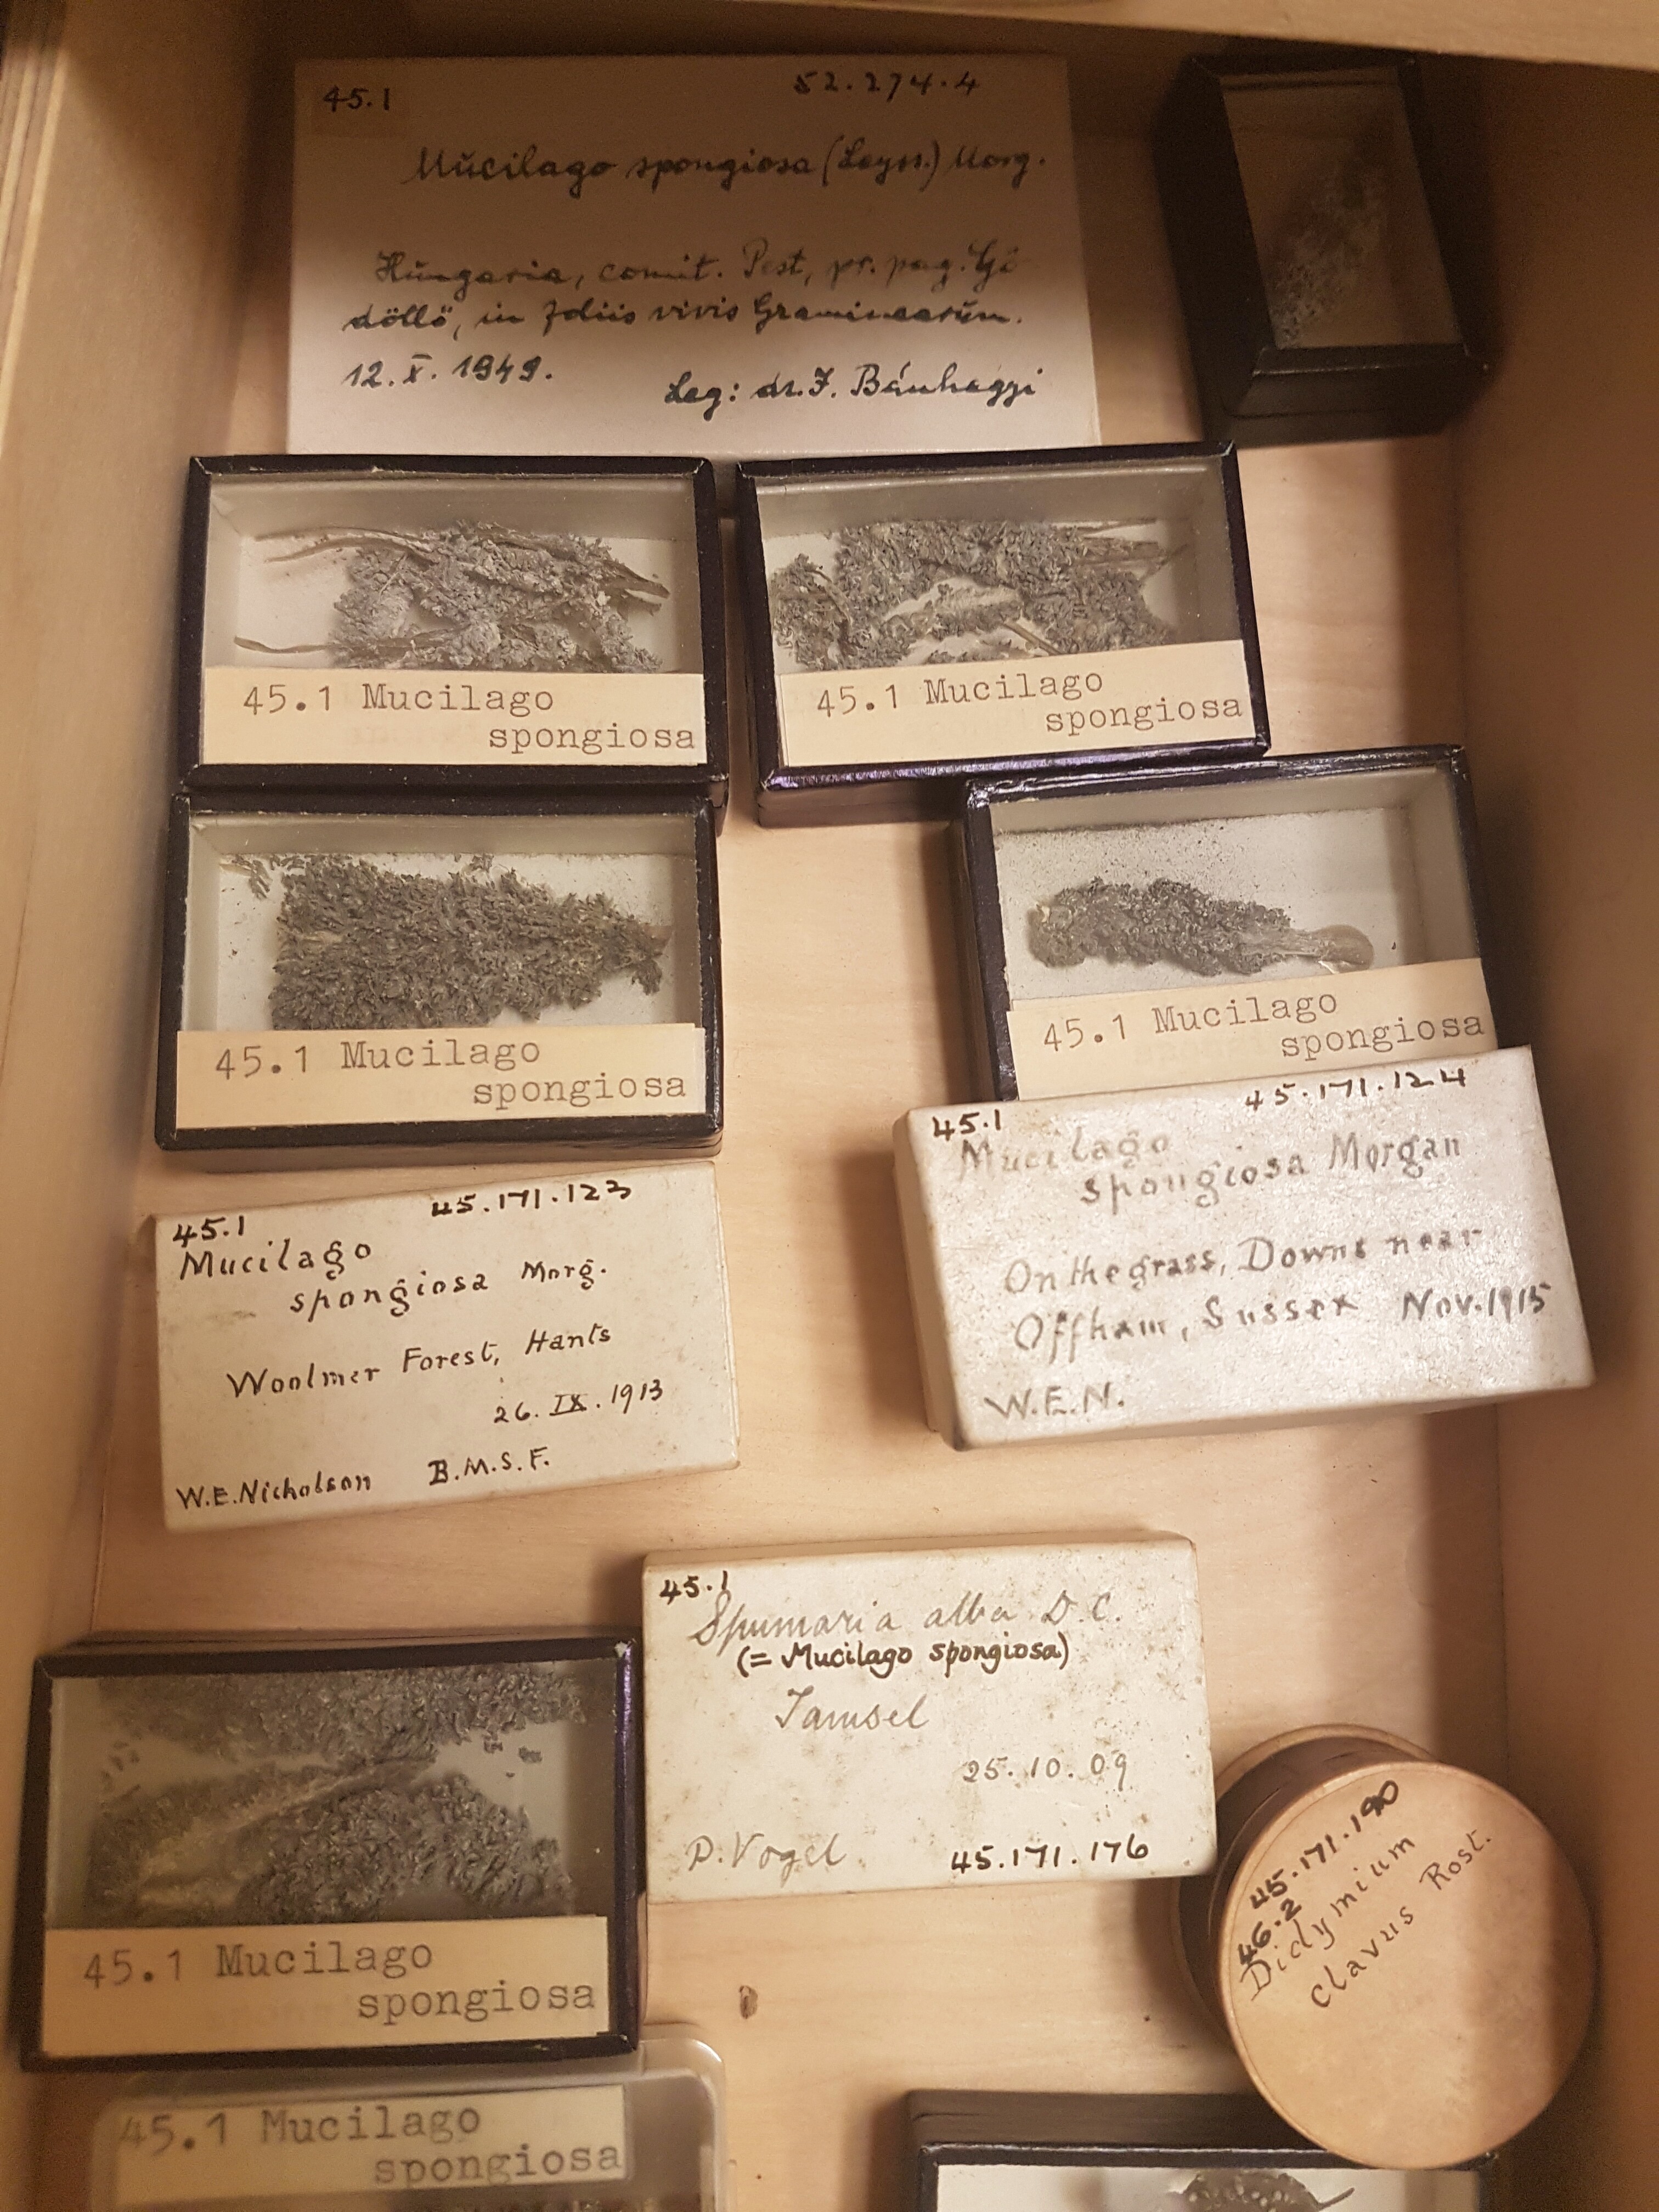 45.1 52.274.4
Mŭcilago spongiosa (Leyss.) Morg.
Hŭngaria, comit. Pest, pr. pag. Gö
döllö, in foliis vivis Graminearŭm.
12. X. 1949. Leg: dr. J. Bánhegyi
45.1 Mucilago
spongiosa
45.1 Mucilago
spongiosa
45.1 Mucilago
spongiosa
45.1 Mucilago
spongiosa
45.1 45.171.123
Mucilago
spongiosa Morg.
Woolmer Forest, Hants
26. IX. 1913
W.E.Nicholson B.M.S.F.
45.1 45.171.124
Mucilago
spongiosa Morgan
On the grass, Downs near
Offham, Sussex Nov. 1915
W.E.N.
45.1
Spumaria alba D.C.
(= Mucilago spongiosa)
Tamsel
25.10.09
P. Vogel 45.171.176
45.1 Mucilago
spongiosa
45.171.190
46.2
Didymium
clavus Rost.
45.1 Mucilago
spongiosa